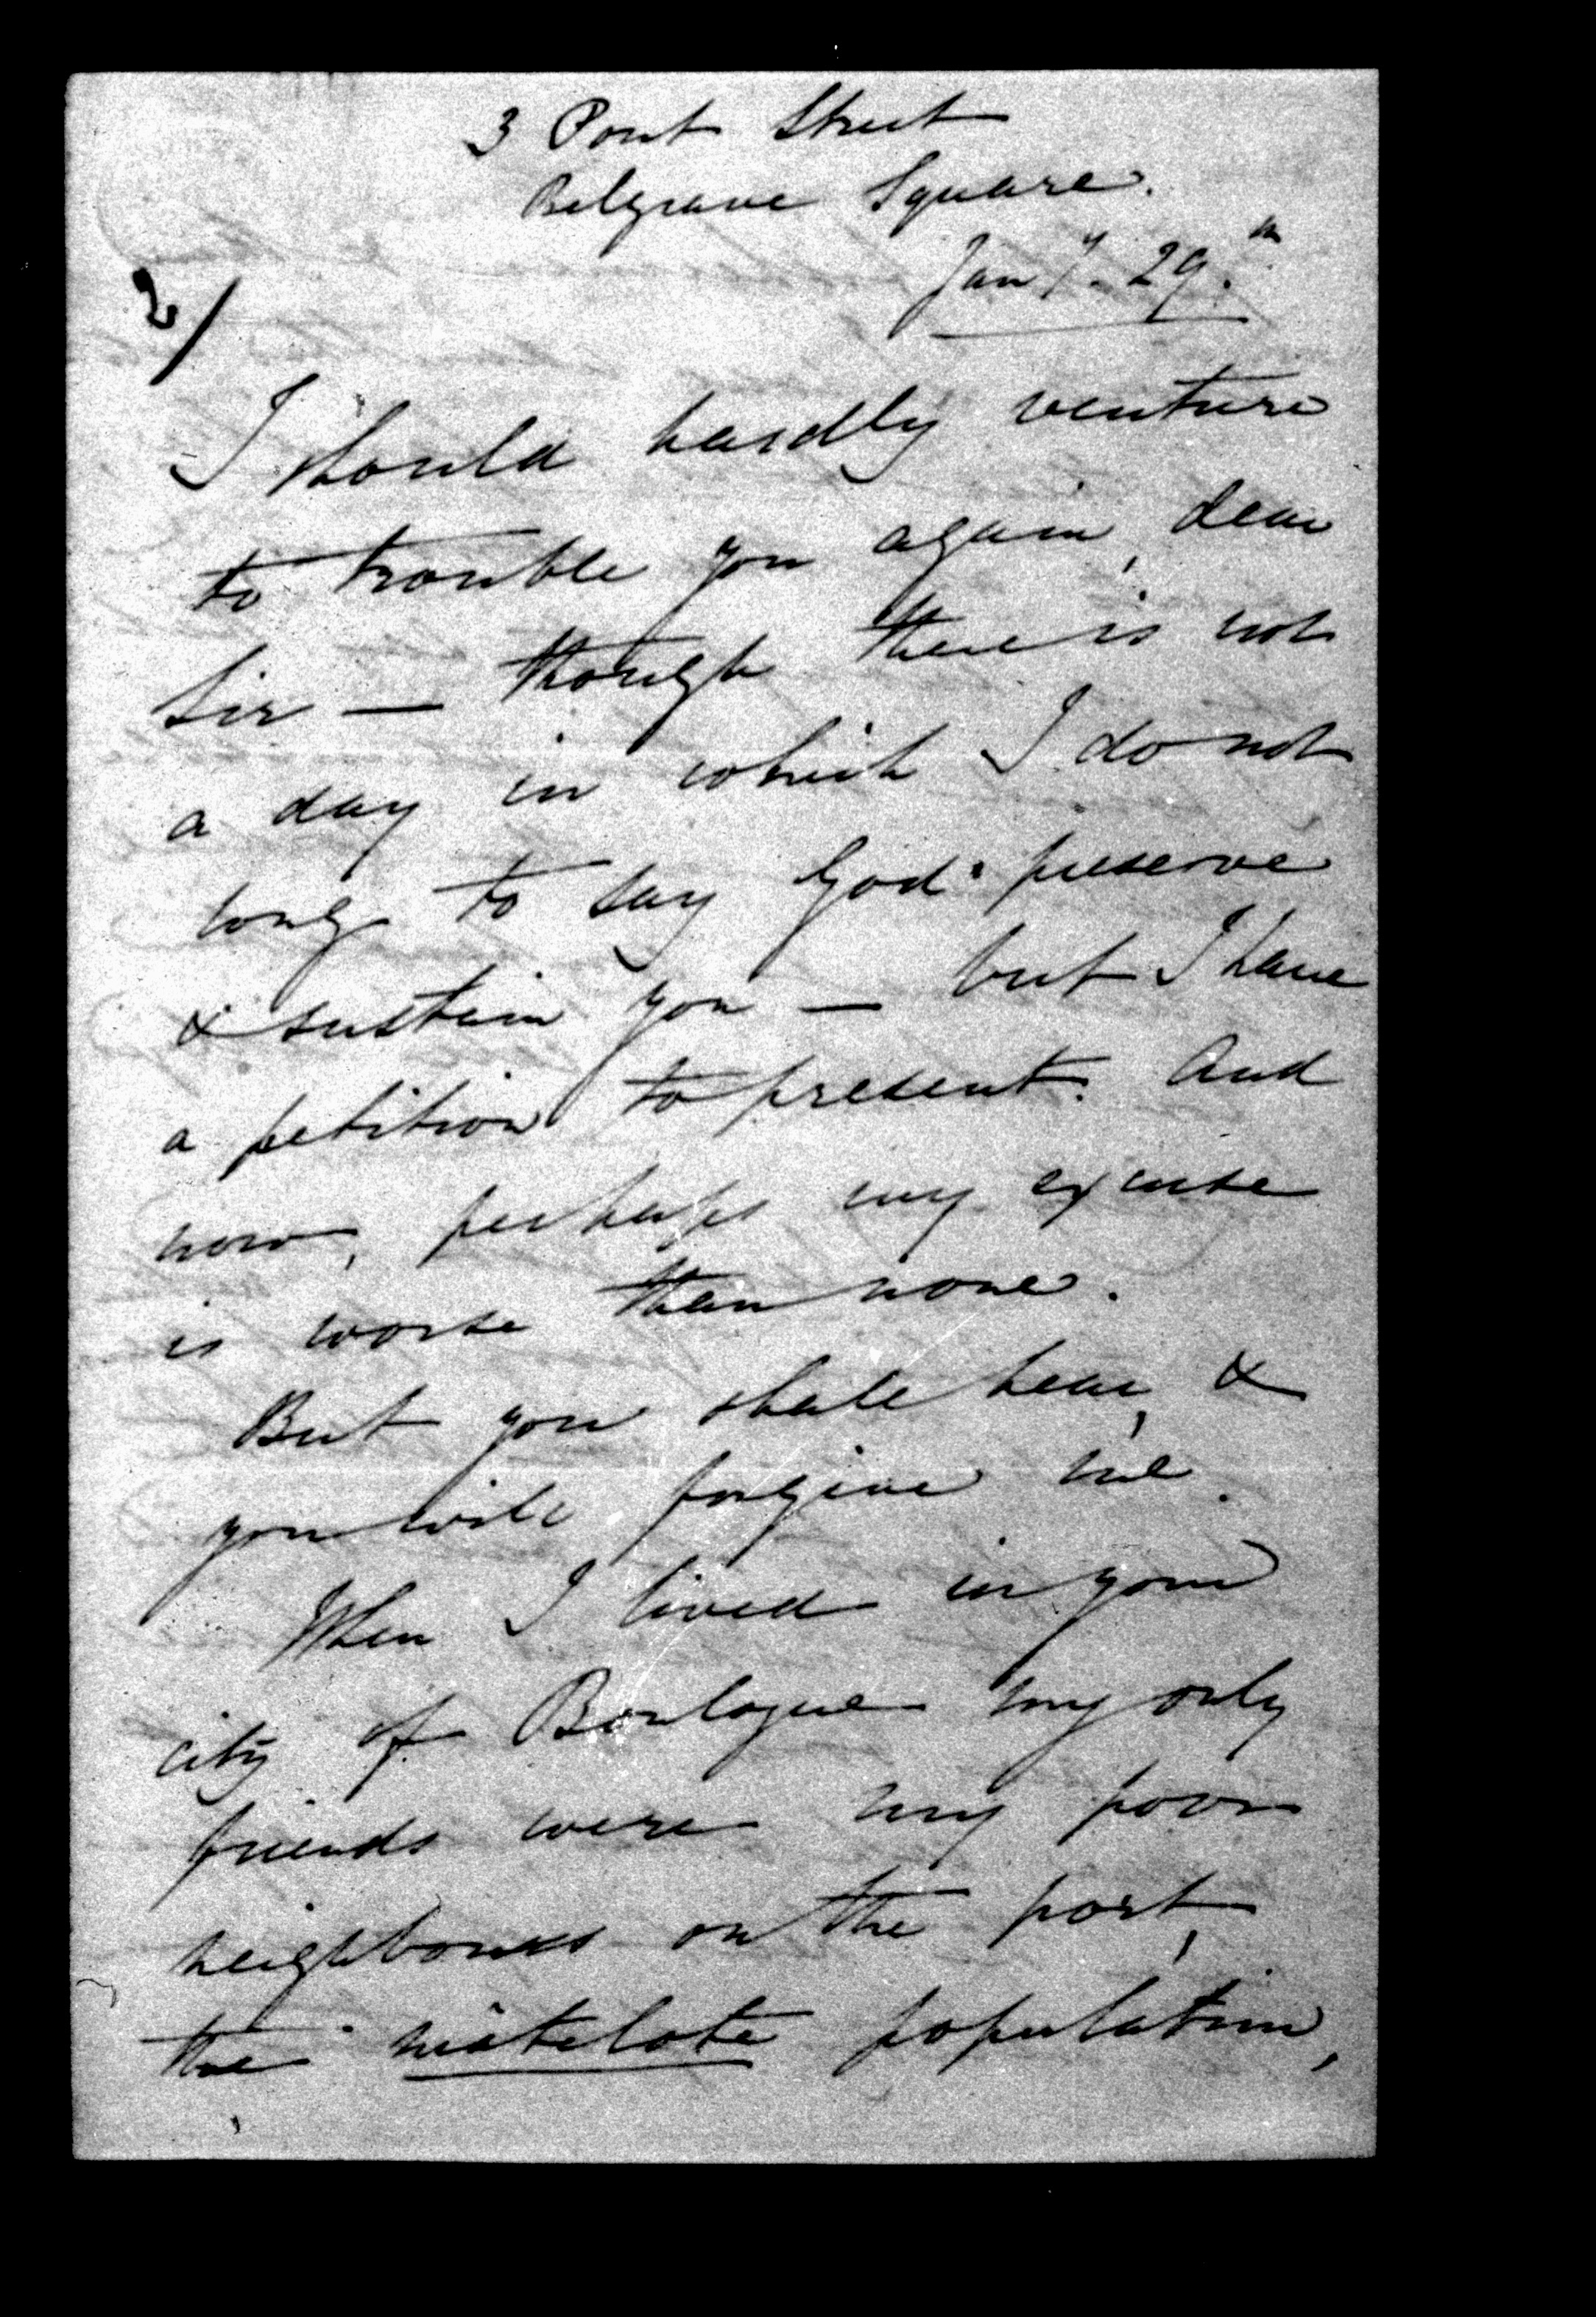 3 Pont Street
Belgrave Square.
Jany. 29.th
2/
I should hardly venture
to trouble you again, dear
Sir — though there is not
a day in which I do not
long to say God preserve
& sustain you — but I have
a petition to present. And
now, perhaps my excuse
is worse than none.
But you shall hear, &
you will forgive me.
When I lived in your
city of Boulogne my only
friends were my poor
neighbours on the port,
the matelote population,